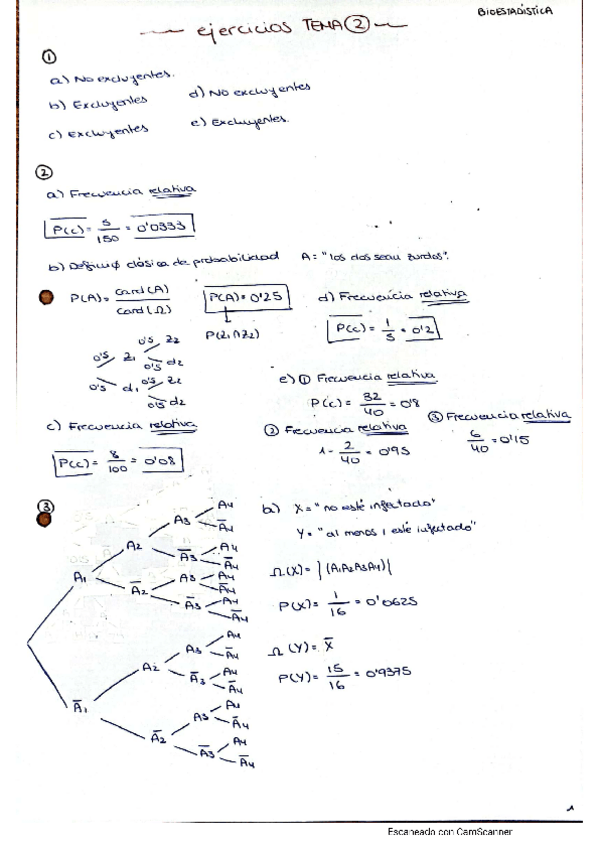 BIOESTADÍSTICA
ejercicios TEMA ②
①
a) No excluyentes.
b) Excluyentes
c) Excluyentes
d) No excluyentes
e) Excluyentes.
②
a) Frecuencia relativa
P(c) = 5/150 = 0'0333
b) clásica de probabilidad A = "los dos sean zurdos".
P(A) = card(A)/card(Ω)
P(A) = 0'25
P(Z₁∩Z₂)
0'5 Z₁ 0'5 Z₂
0'5 d₂
0'5 d₁ 0'5 Z₂
0'5 d₂
c) Frecuencia relativa
P(c) = 8/100 = 0'08
d) Frecuencia relativa
P(c) = 1/5 = 0'2
e) ① Frecuencia relativa
P(c) = 32/40 = 0'8
② Frecuencia relativa
1 - 2/40 = 0'95
③ Frecuencia relativa
6/40 = 0'15
③
A₁ A₂ A₃ A₄
A̅₄
A̅₃ A₄
A̅₄
A̅₂ A₃ A₄
A̅₄
A̅₃ A₄
A̅₄
A̅₁ A₂ A₃ A₄
A̅₄
A̅₃ A₄
A̅₄
A̅₂ A₃ A₄
A̅₄
A̅₃ A₄
A̅₄
a) X = "no esté infectado"
Y = "al menos 1 esté infectado"
Ω(X) = |(A₁A₂A₃A₄)|
P(X) = 1/16 = 0'0625
Ω(Y) = X̅
P(Y) = 15/16 = 0'9375
1
Escaneado con CamScanner